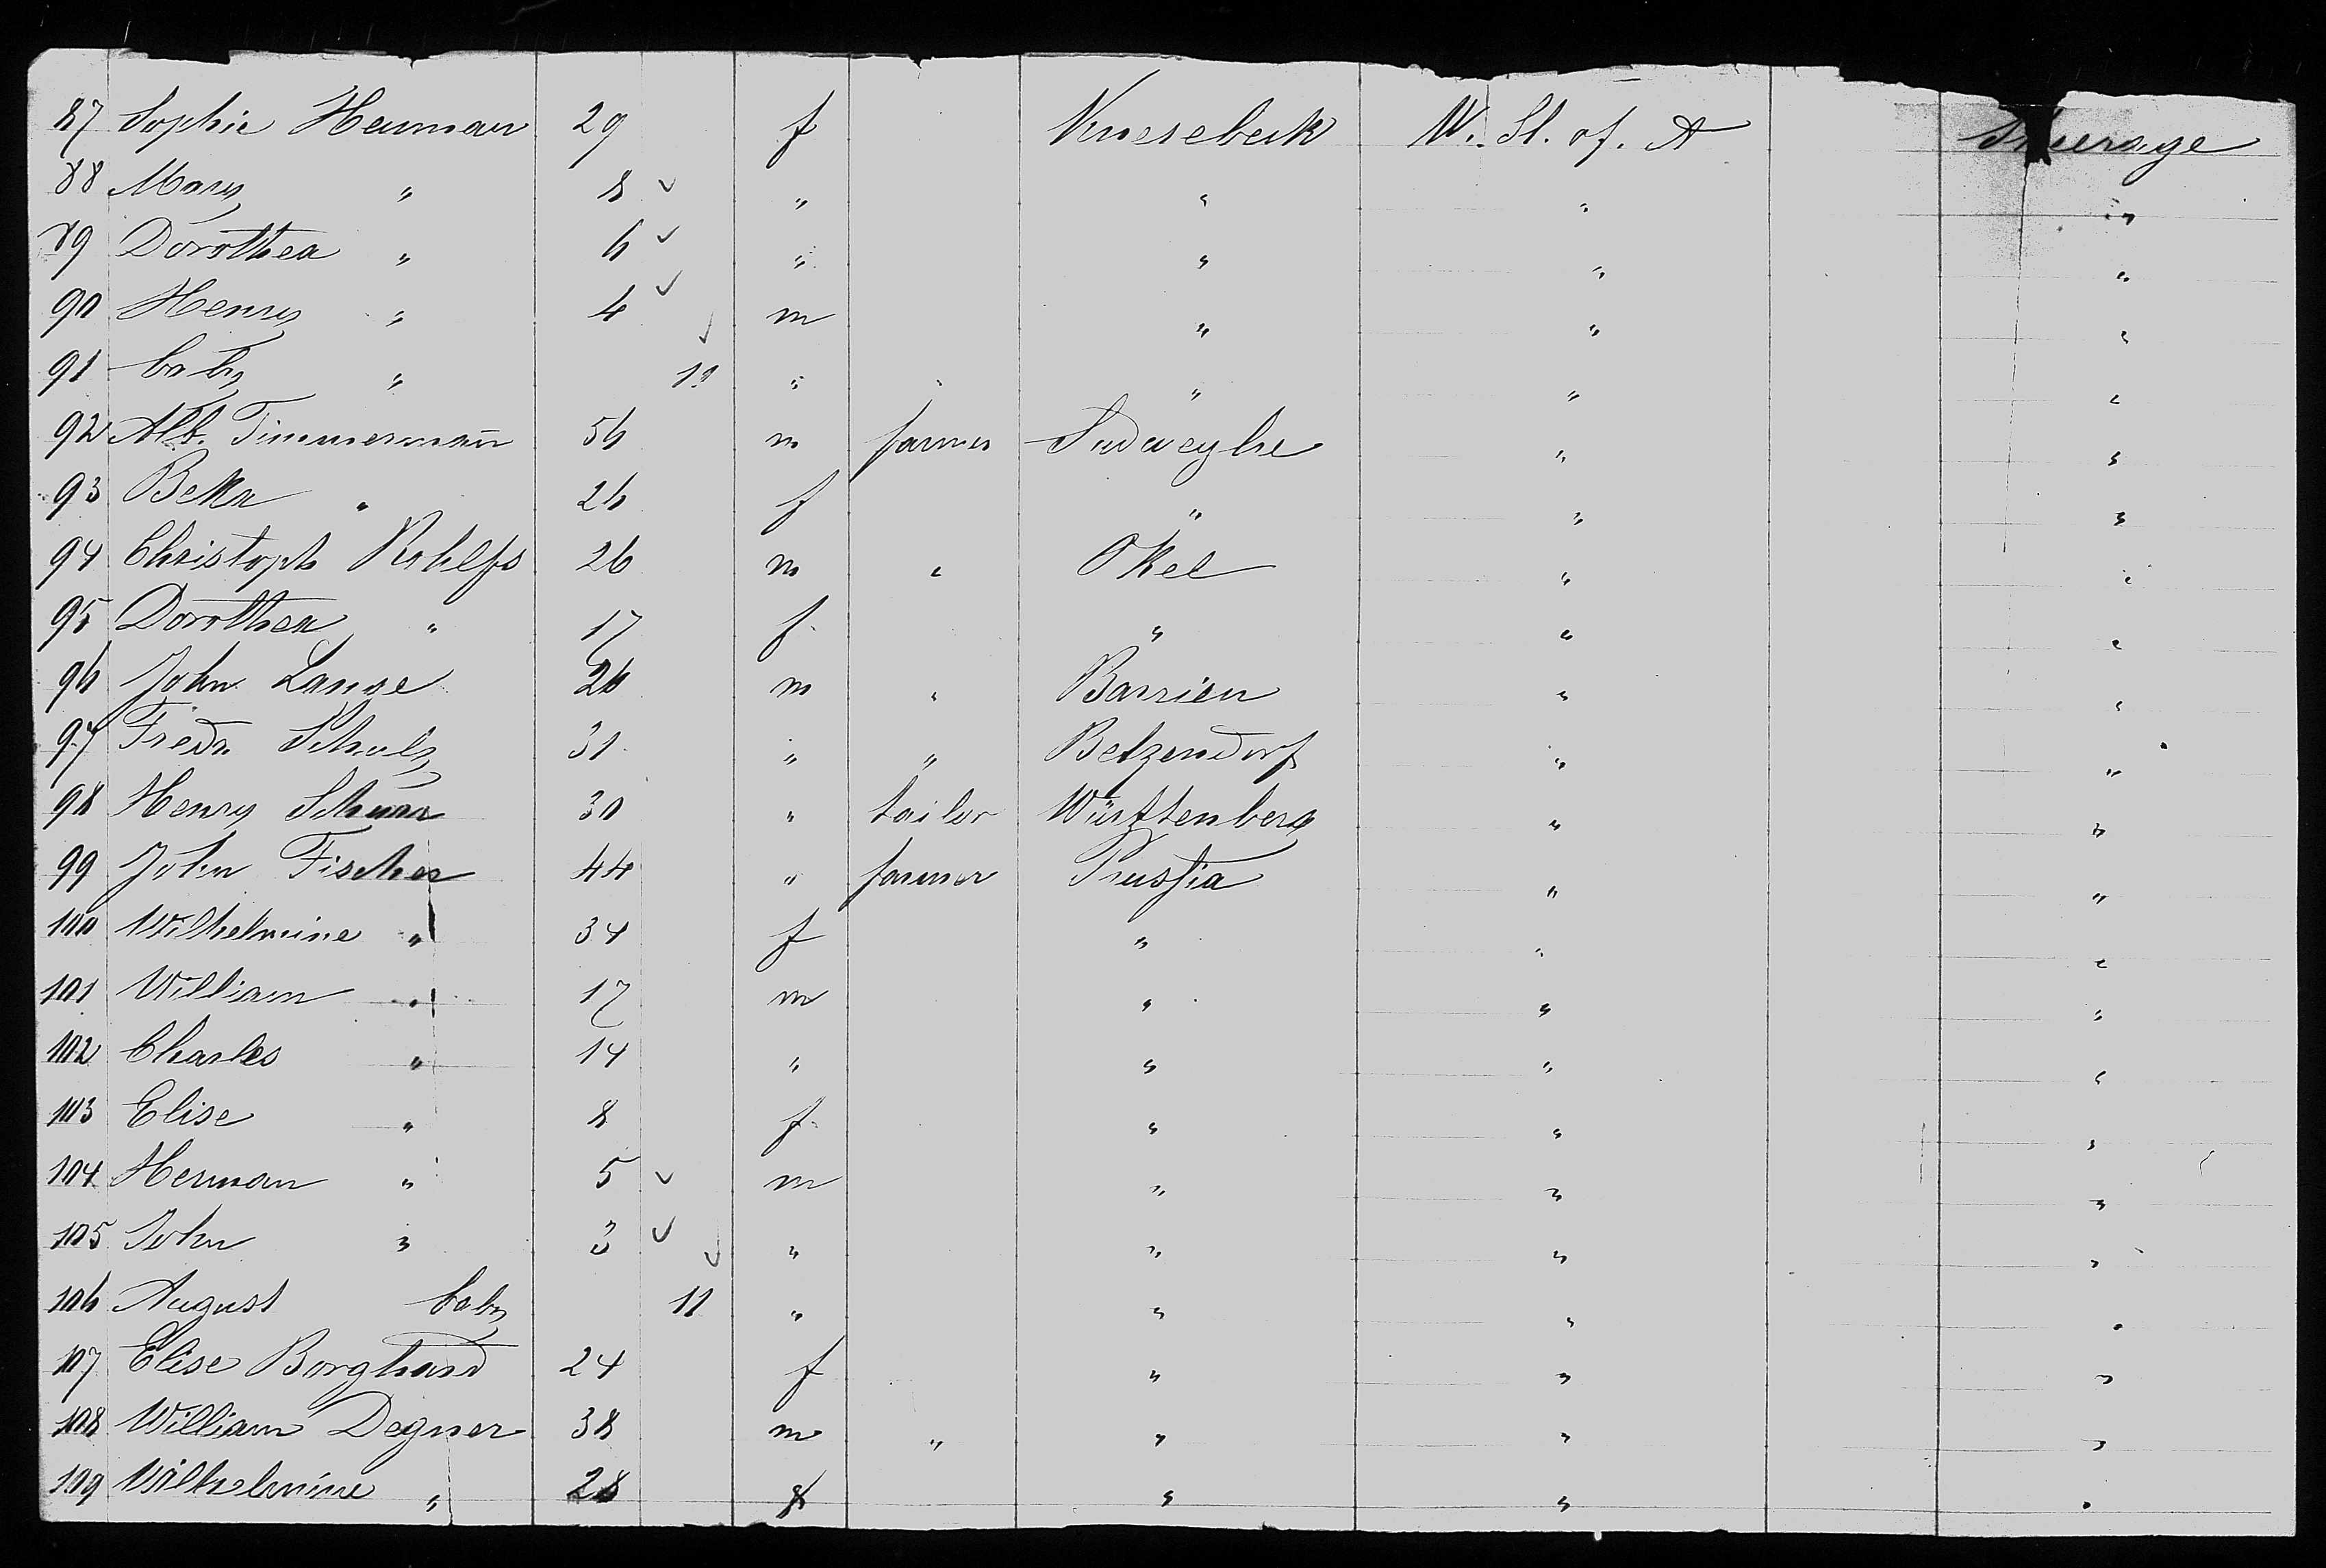 87 Sophie Heuman 29 f Knesebeck U. St. of. A Steerage
88 Mary " 8 " " " "
89 Dorothea " 6 " " " "
90 Henry " 4 m " " "
91 baby " 11 " " " "
92 Alb. Timmermann 56 m farmer Sudweyhe " "
93 Beka " 26 f " " "
94 Christoph Rohlfs 26 m " Okel " "
95 Dorothea " 17 f " " "
96 John Lange 26 m " Barrien " "
97 Fredr Schulz 31 " " Betzendorf " "
98 Henry 30 " tailor Württenberg " "
99 John Fischer 44 " farmer Prussia " "
100 Wilhelmine " 34 f " " "
101 William " 17 m " " "
102 Charles " 14 " " " "
103 Elise " 8 f " " "
104 Herman " 5 m " " "
105 John " 3 " " " "
106 August baby 11 " " " "
107 Elise Borghard 24 f " " "
108 William Degner 38 m " " " "
109 Wilhelmine " 28 f " " "